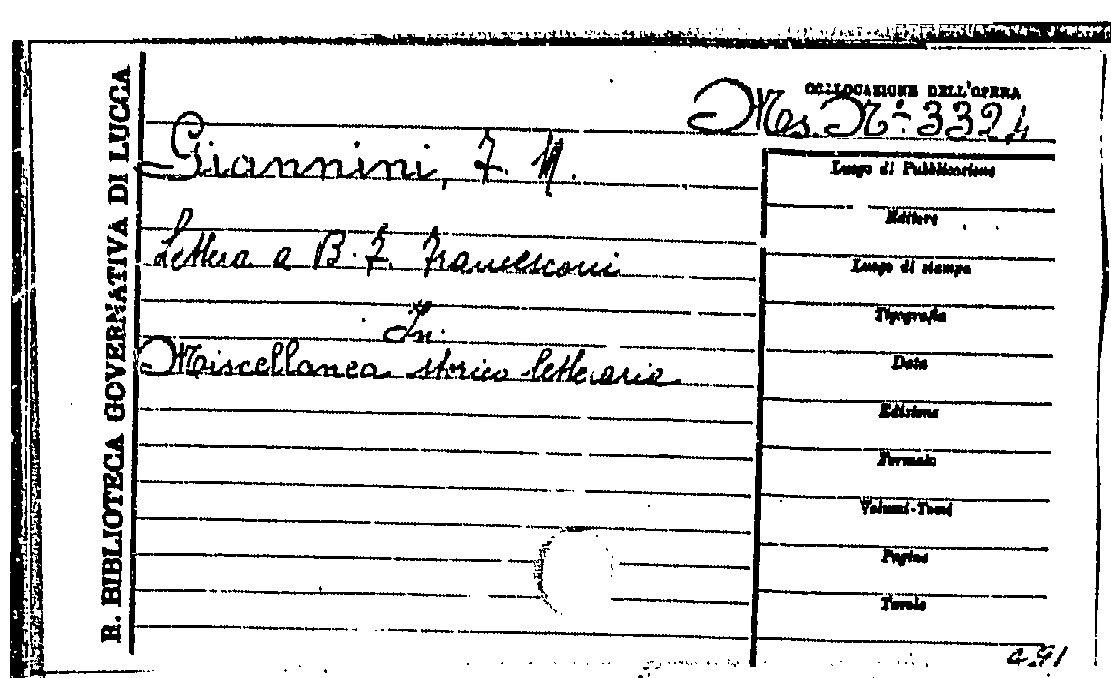 R. BIBLIOTECA GOVERNATIVA DI LUCCA
COLLOCAZIONE DELL'OPERA
Ms. N.º 3324
Giannini, F. M.
Lettera a B. F. Francesconi
In:
Miscellanea storico letteraria
Luogo di Pubblicazione
Editore
Luogo di stampa
Tipografia
Data
Edizione
Formato
Volumi-Tomi
Pagine
Tavole
c. 91